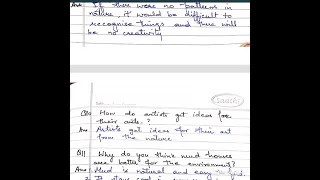 Ans If there were no patterns in
nature, it would be difficult to
recognize things and there will
be no creativity
Classmate
Q10 How do artists get ideas for
their arts?
Ans Artists get ideas for their art
from the nature
Q11 Why do you think mud houses
are better for the environment?
Ans 1. Mud is natural and easy to find.
2. It stays cool in